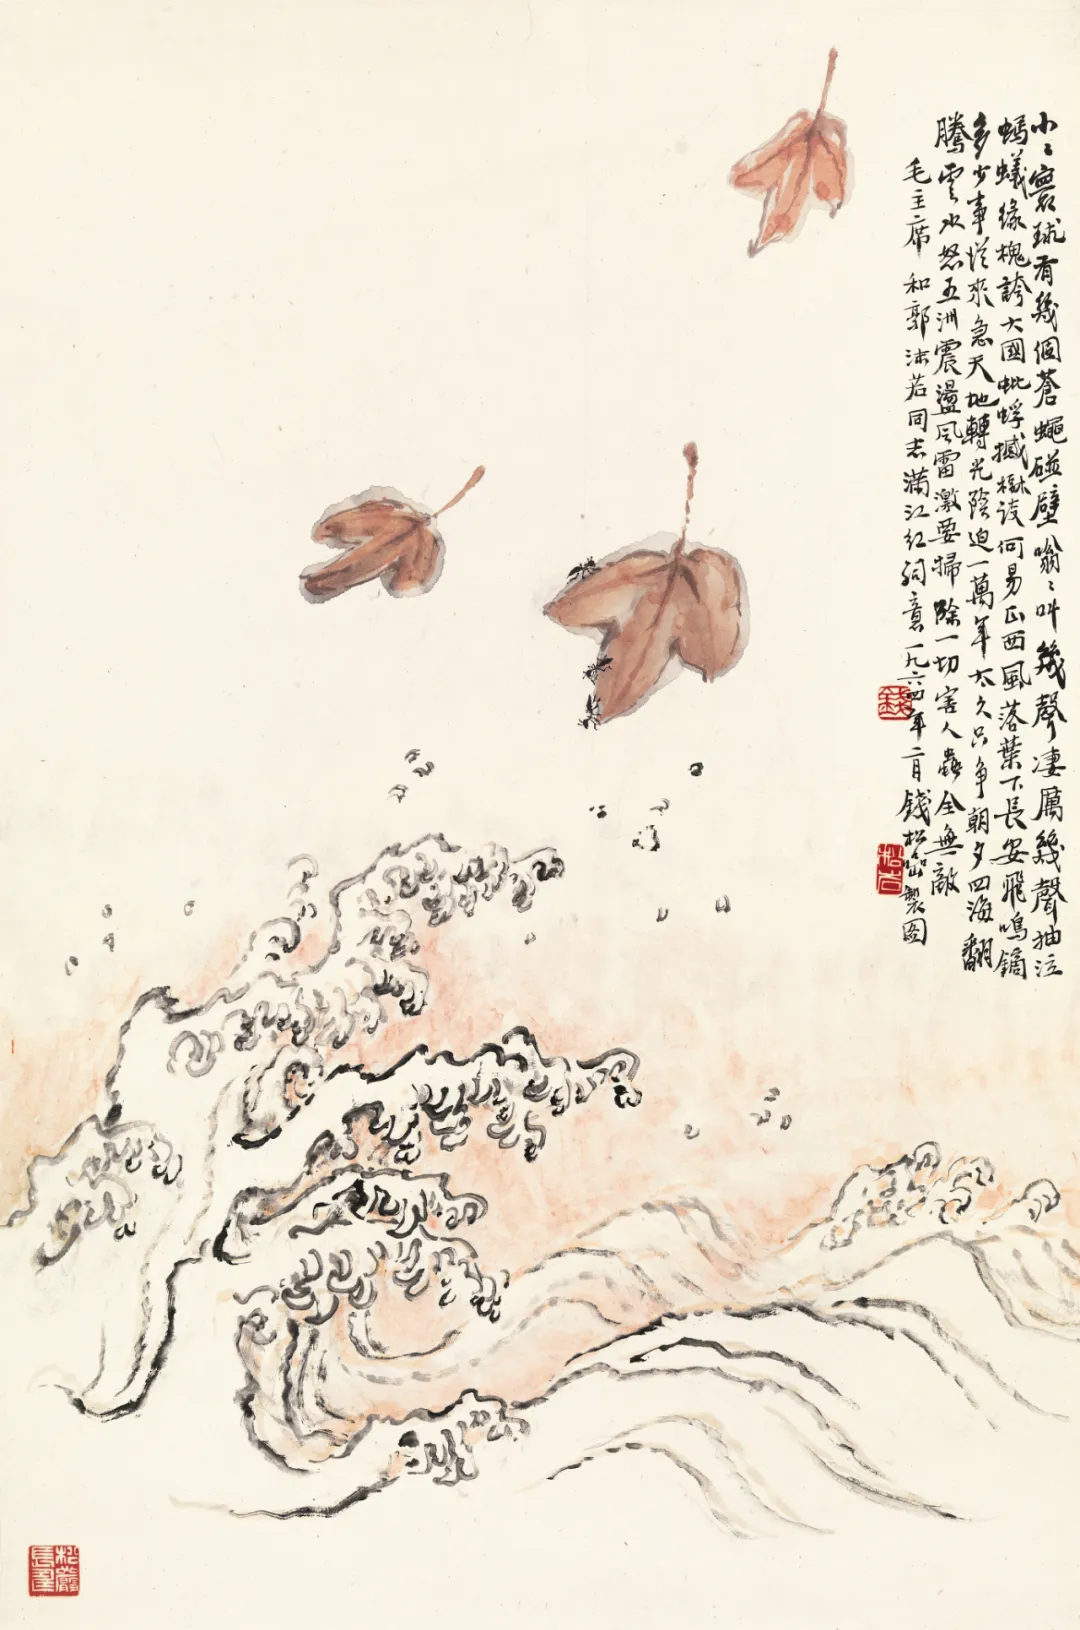 小〻寰球有幾個蒼蠅碰壁嗡〻叫幾聲凄厲幾聲抽泣
螞蟻緣槐誇大國蚍蜉撼樹談何易正西風落葉下長安飛鳴鏑
多少事從來急天地轉光陰迫一萬年太久只争朝夕四海翻
騰雲水怒五洲震盪風雷激要掃除一切害人蟲全無敵
毛主席 和郭沫若同志滿江紅詞意一九六四年二月錢松喦製圖
錢